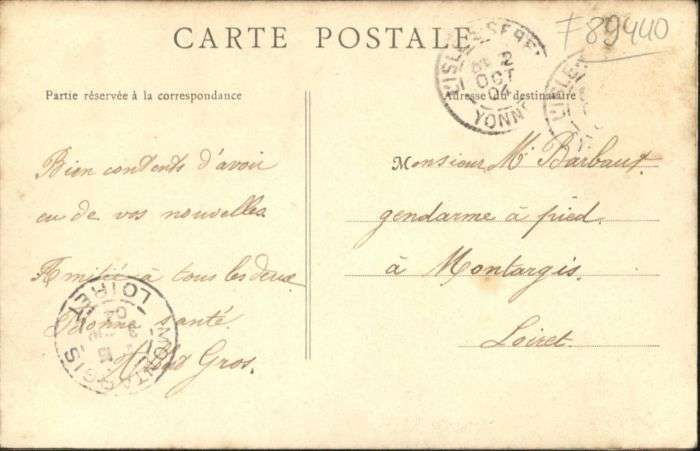 CARTE POSTALE
F 89440
Partie réservée à la correspondance
Adresse du destinataire
L'ISLE-S-SEREIN
2
OCT
04
YONNE
L'ISLE
Bien contents d'avoir
eu de vos nouvelles.
Amitié à tous les deux
et bonne santé.
Gros.
Monsieur M. Barbaux.
gendarme à pied.
à Montargis.
Loiret.
MONTARGIS
LOIRET
04